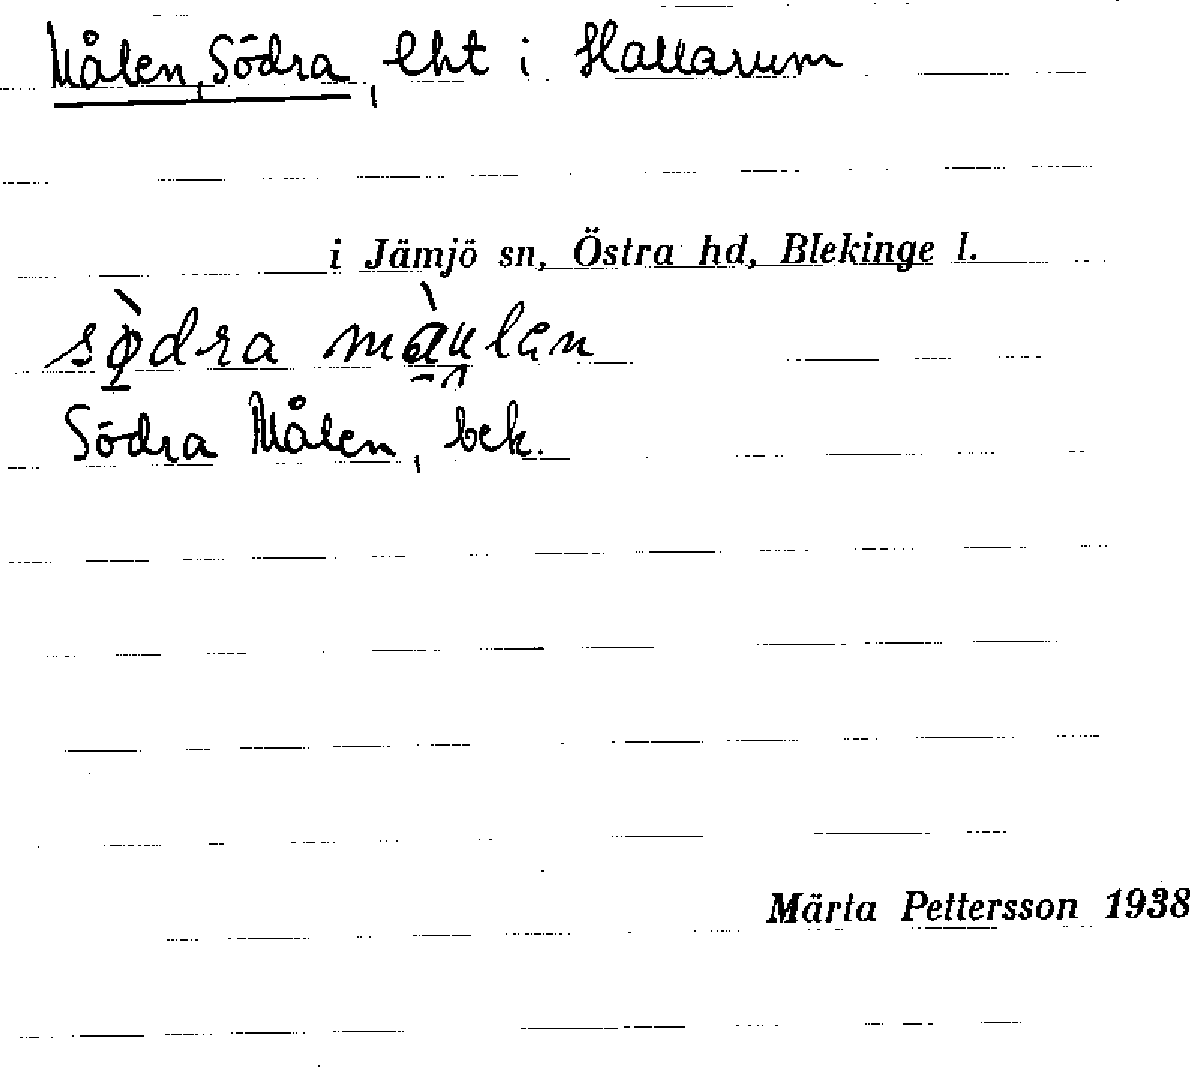 Målen, Södra, lht i Hallarum
i Jämjö sn, Östra hd, Blekinge l.
sø̀dra màulen
Södra Målen, bek.
Märta Pettersson 1938